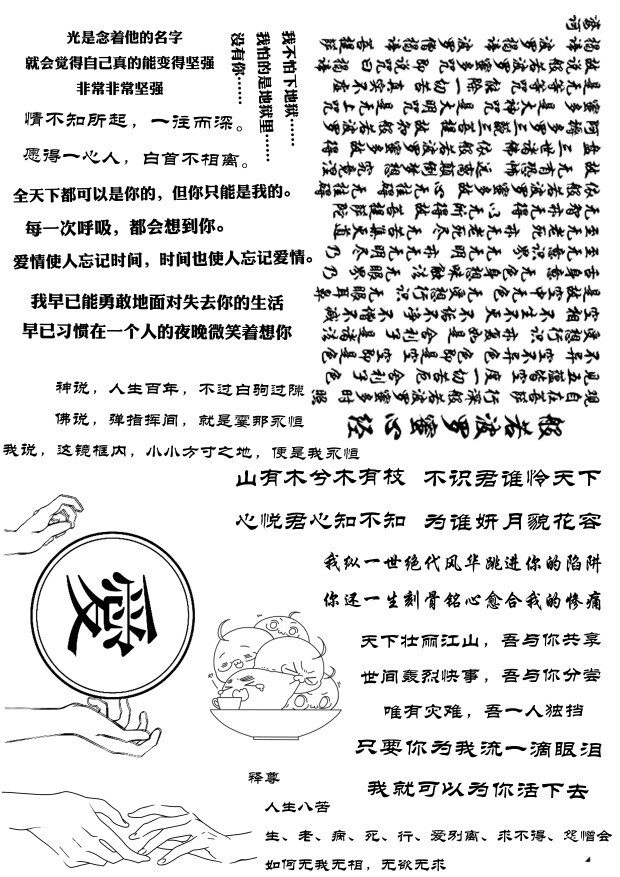 光是念着他的名字
就会觉得自己真的能变得坚强
非常非常坚强
我不怕下地狱……
我怕的是地狱里……
没有你……
情不知所起，一往而深。
愿得一心人，白首不相离。
全天下都可以是你的，但你只能是我的。
每一次呼吸，都会想到你。
爱情使人忘记时间，时间也使人忘记爱情。
我早已能勇敢地面对失去你的生活
早已习惯在一个人的夜晚微笑着想你
神说，人生百年，不过白驹过隙
佛说，弹指挥间，就是霎那永恒
我说，这镜框内，小小方寸之地，便是我永恒
般若波罗蜜心经
观自在菩萨行深般若波罗蜜多时照
见五蕴皆空度一切苦厄舍利子色
不异空空不异色色即是空空即是色
受想行识亦复如是舍利子是诸法
空相不生不灭不垢不净不增不减
是故空中无色无受想行识无眼耳鼻
舌身意无色声香味触法无眼界乃
至无意识界无无明亦无无明尽乃
至无老死亦无老死尽无苦集灭道
无智亦无得以无所得故菩提萨陀
依般若波罗蜜多故心无罣碍无罣碍
故无有恐怖远离颠倒梦想究竟涅
盘三世诸佛依般若波罗蜜多故得
阿耨多罗三藐三菩提故知般若波罗
蜜多是大神咒是大明咒是无上咒
是无等等咒能除一切苦真实不虚
故说般若波罗蜜多咒即说咒曰揭谛
揭谛波罗揭谛波罗僧揭谛菩提萨
婆诃
山有木兮木有枝 不识君谁怜天下
心悦君心知不知 为谁妍月貌花容
我纵一世绝代风华跳进你的陷阱
你还一生刻骨铭心愈合我的惨痛
愛
天下壮丽江山，吾与你共享
世间轰烈快事，吾与你分尝
唯有灾难，吾一人独挡
只要你为我流一滴眼泪
我就可以为你活下去
释尊
人生八苦
生、老、病、死、行、爱别离、求不得、怨憎会
如何无我无相，无欲无求